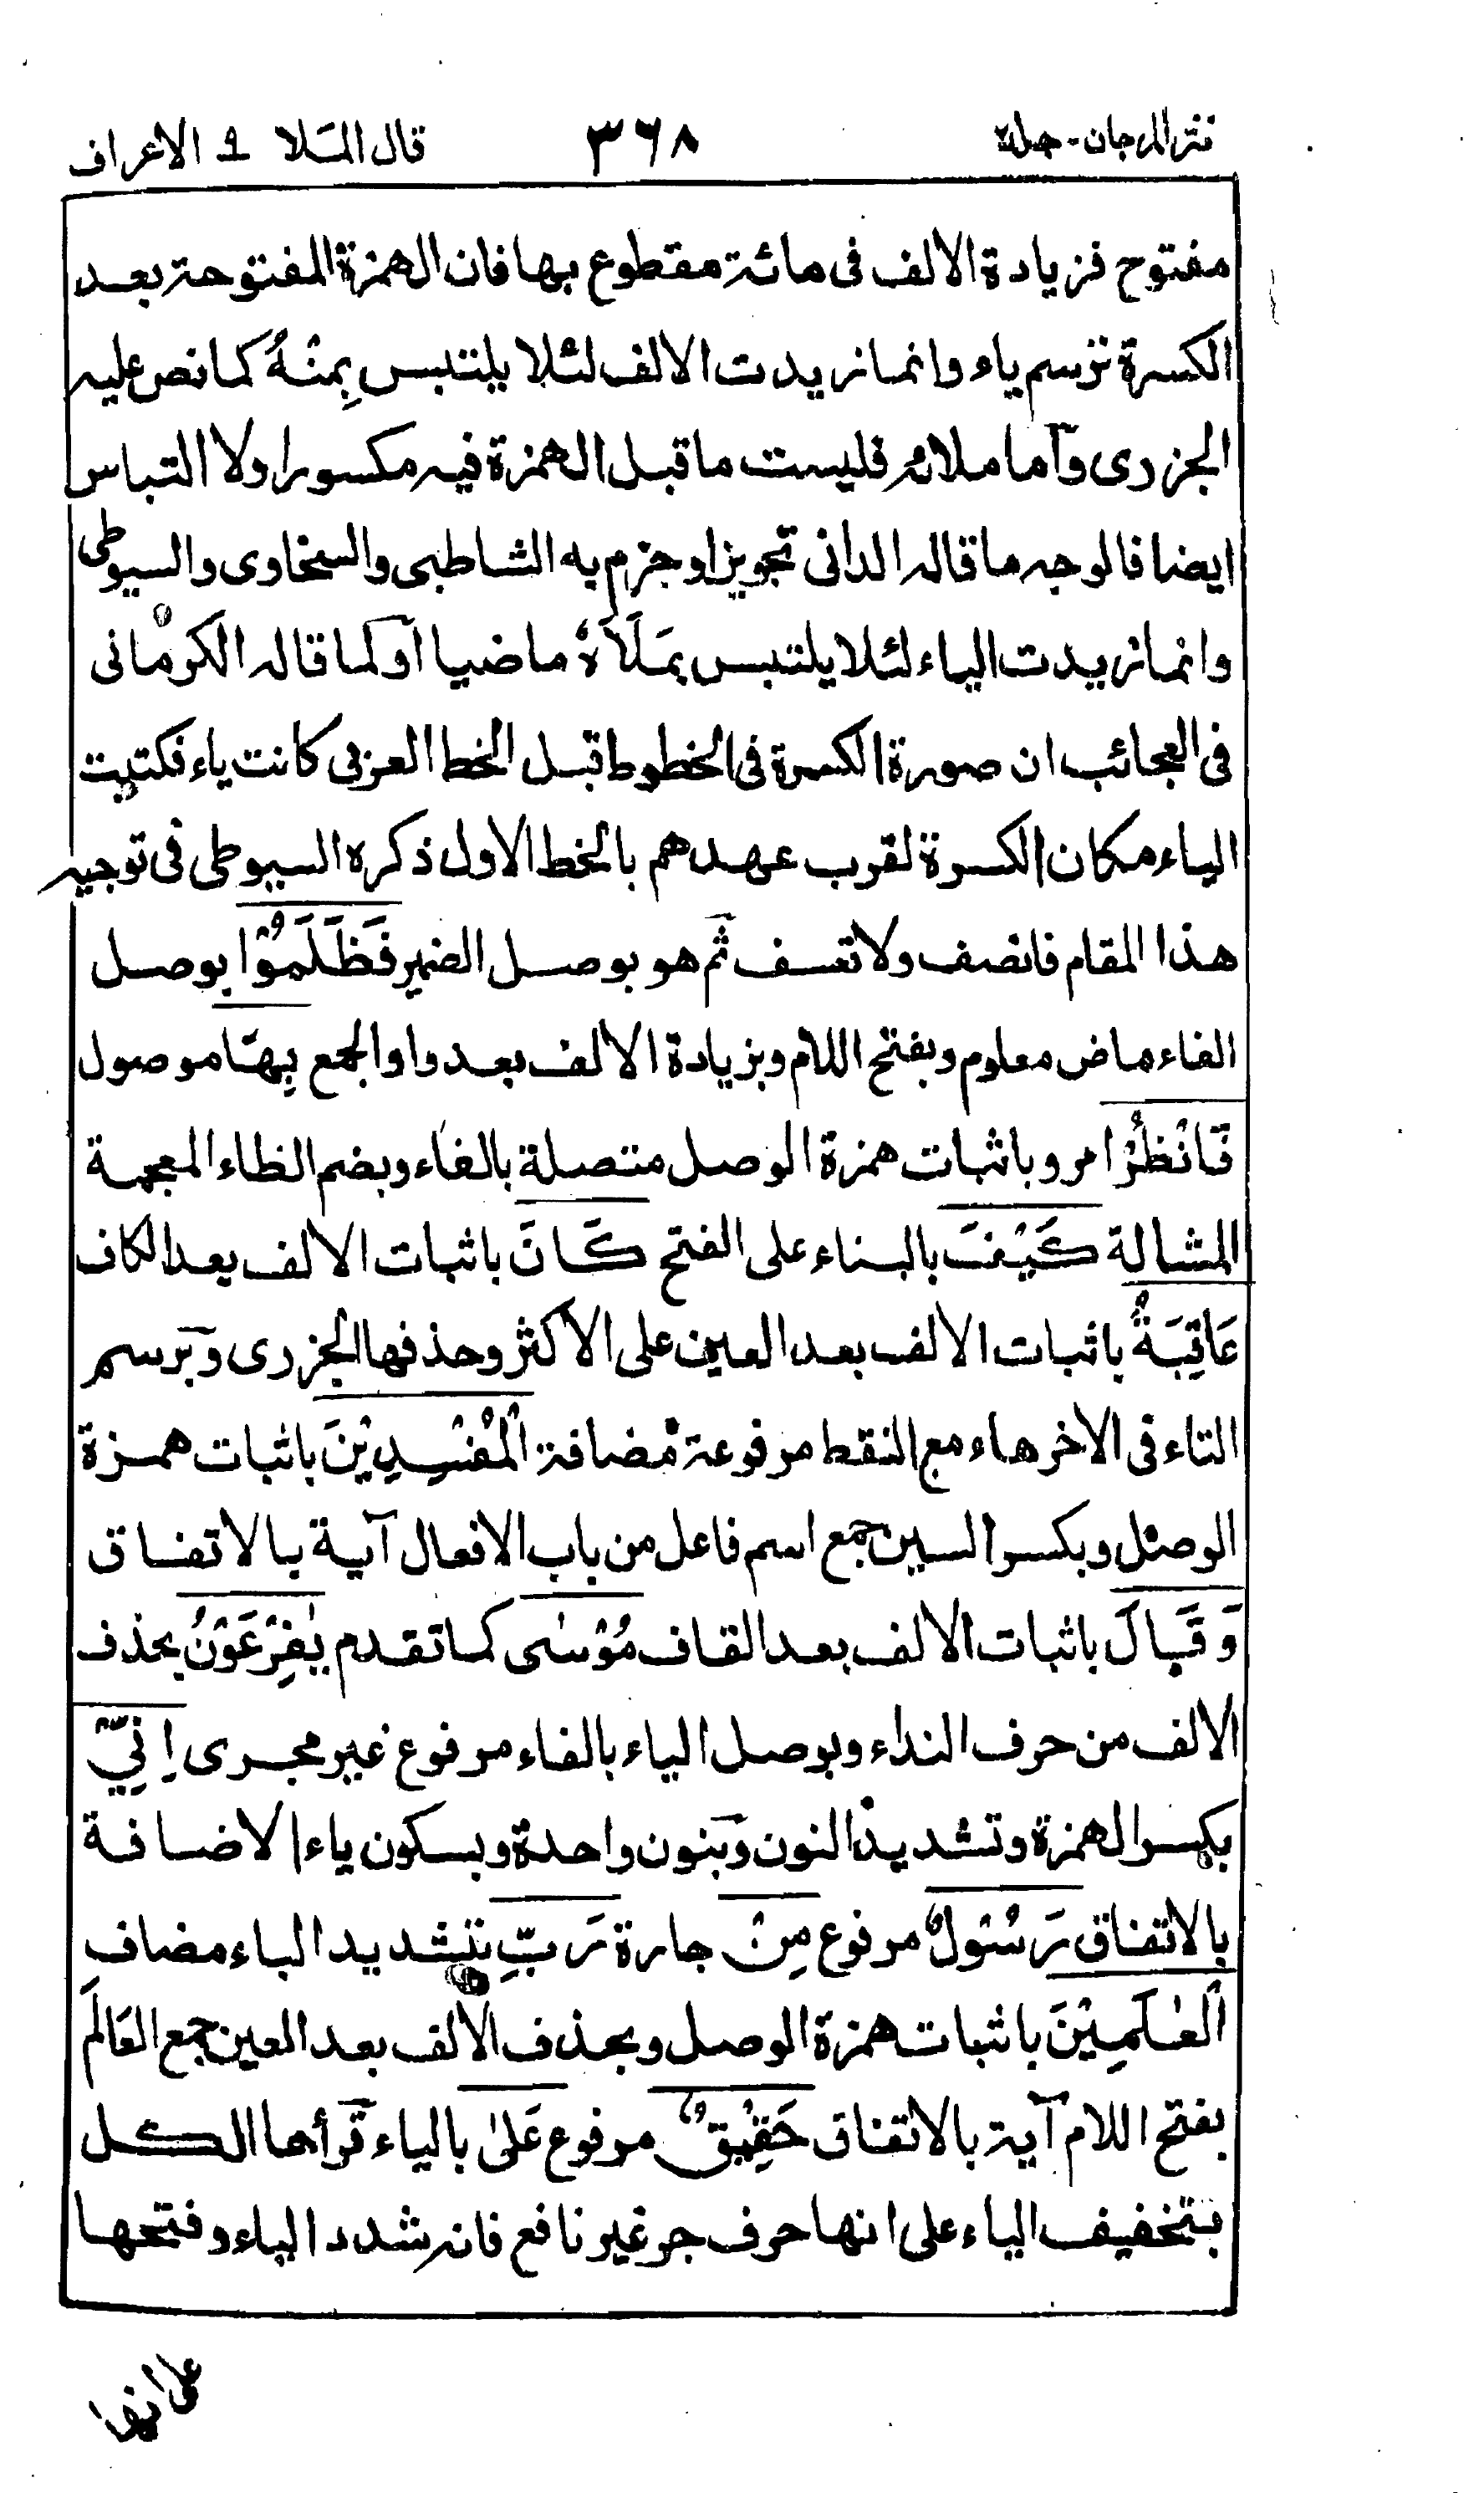 نثر المرجان - جلد٢ ٣٦٨ قال الملا ٩ الاعراف
مفتوح فزيادة الالف فى مائة مقطوع بها فان الهمزة المفتوحة بعد
الكسرة ترسم ياء وانما زيدت الالف لئلا يلتبس بِمنْهُ كما نص عليه
الجزرى وَاما ملائه فليست ما قبل الهمزة فيه مكسورا ولا التباس
ايضا فالوجه ما قاله الدانى تجويزا وجزم به الشاطبى والسخاوى والسيوطى
وانما زيدت الياء لئلا يلتبس بمَلَأَهٗ ماضيا اَو لما قاله الكرْمانى
فى العجائب ان صورة الكسرة فى الخطوط قبل الخط العربى كانت ياء فكتبت
الياء مكان الكسرة لقرب عهدهم بالخط الاول ذكره السيوطى فى توجيه
هذا المقام فانصف ولا تعسف ثَم هو بوصل الضمير فَظَلَمُوْا بوصل
الفاء ماض معلوم وبفتح اللام وبزيادة الالف بعد واو الجمع بِهَا موصول
فَانْظُرْ امر وباثبات همزة الوصل متصلة بالفاء وبضم الظاء المعجمة
المشالة كَيْفَ بالبناء على الفتح كَانَ باثبات الالف بعد الكاف
عَاقِبَةُ باثبات الالف بعد العين على الاكثر وحذفها الجزرى وَبرسم
التاء فى الاخر هاء مع النقط مرفوعة مضافة الْمُفْسِدِيْنَ باثبات همزة
الوصل وبكسر السين جمع اسم فاعل من باب الافعال آية بالاتفاق
وَقَالَ باثبات الالف بعد القاف مُوْسٰى كما تقدم يٰفِرْعَوْنُ بحذف
الالف من حرف النداء وبوصل الياء بالفاء مرفوع غير مجرى اِنِّيْ
بكسر الهمزة وتشديد النون وَبنون واحدة وبسكون ياء الاضافة
بالاتفاق رَسُوْلٌ مرفوع مِنْ جارة رَبِّ بتشديد الباء مضاف
الْعٰلَمِيْنَ باثبات همزة الوصل وبحذف الالف بعد العين جمع العَالَم
بفتح اللام آية بالاتفاق حَقِيْقٌ مرفوع عَلٰى بالياء قَرأها الكل
بتخفيف الياء على انها حرف جر غير نافع فانه شدد الياء وفتحها
على انها